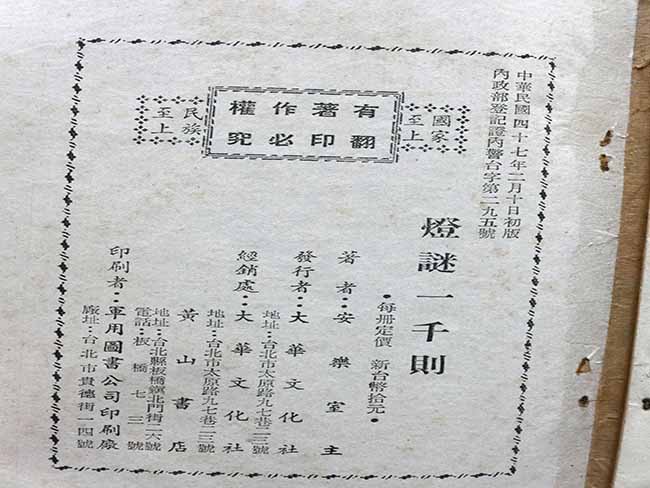 中華民國四十七年二月十日初版
內政部登記證內警台字第二九五號
有著作權
翻印必究
國家
至上
民族
至上
燈謎一千則
•每冊定價 新台幣拾元•
著者：安樂室主
發行者：大華文化社
地址：台北市太原路九七巷二三號
經銷處：大華文化社
地址：台北市太原路九七巷二三號
黃山書店
地址：台北縣板橋鎮北門街二六號
電話：板橋七三號
印刷者：軍用圖書公司印刷廠
廠址：台北市貴德街一四號